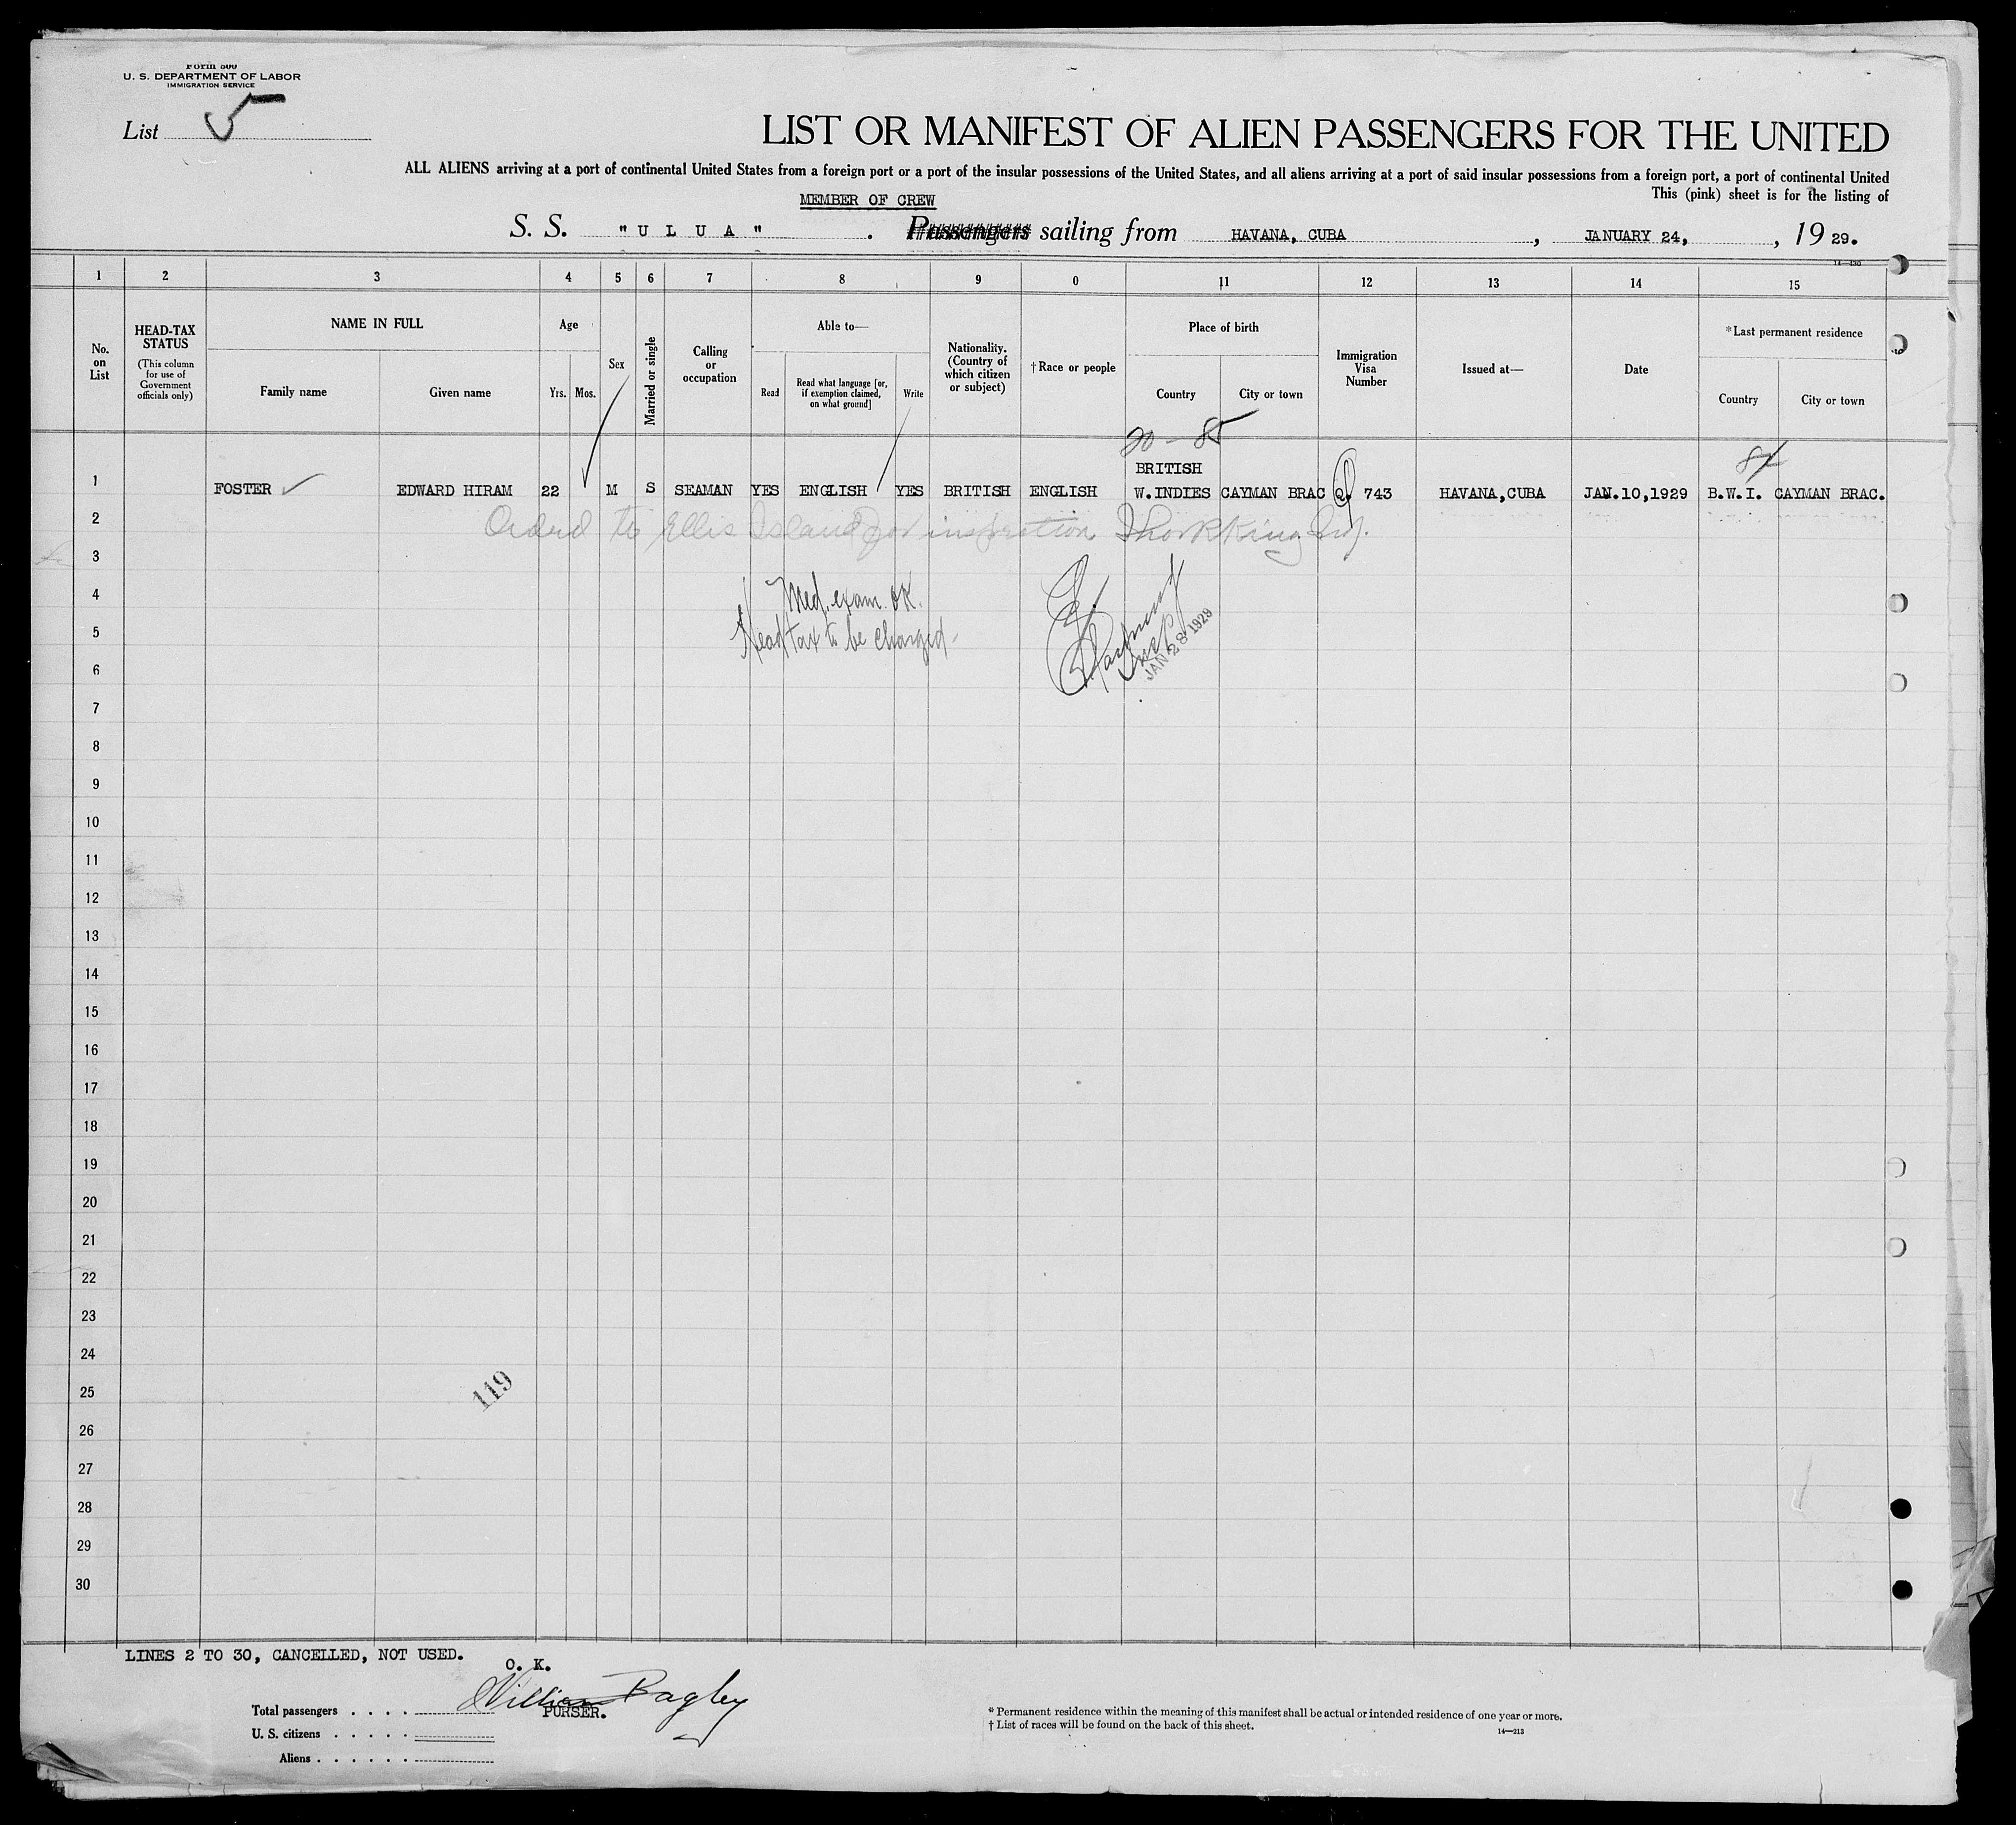 Form 500
U. S. DEPARTMENT OF LABOR
IMMIGRATION SERVICE
List 5
LIST OR MANIFEST OF ALIEN PASSENGERS FOR THE UNITED
ALL ALIENS arriving at a port of continental United States from a foreign port or a port of the insular possessions of the United States, and all aliens arriving at a port of said insular possessions from a foreign port, a port of continental United
This (pink) sheet is for the listing of
MEMBER OF CREW
S. S. "ULUA" . Passengers sailing from HAVANA, CUBA , JANUARY 24, , 19 29.
1 2 3 4 5 6 7 8 9 0 11 12 13 14 15
No. on List
HEAD-TAX STATUS
(This column for use of Government officials only)
NAME IN FULL
Family name
Given name
Age
Yrs. Mos.
Sex
Married or single
Calling or occupation
Able to—
Read
Read what language [or, if exemption claimed, on what ground]
Write
Nationality. (Country of which citizen or subject)
†Race or people
Place of birth
Country
City or town
Immigration Visa Number
Issued at—
Date
*Last permanent residence
Country
City or town
20 - 85
84
1 FOSTER EDWARD HIRAM 22 M S SEAMAN YES ENGLISH YES BRITISH ENGLISH BRITISH W.INDIES CAYMAN BRAC Q. 743 HAVANA,CUBA JAN.10,1929 B.W.I. CAYMAN BRAC.
2 to Ellis Island for inspection
3
4 Med. exam. OK.
5 Head tax to be charged
JAN 28 1929
6
7
8
9
10
11
12
13
14
15
16
17
18
19
20
21
22
23
24
25
119
26
27
28
29
30
LINES 2 TO 30, CANCELLED, NOT USED.
O. K.
William Bagley
PURSER.
Total passengers . . . .
U. S. citizens . . . . .
Aliens . . . . . .
* Permanent residence within the meaning of this manifest shall be actual or intended residence of one year or more.
† List of races will be found on the back of this sheet.
14—213